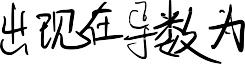 出现在导数为